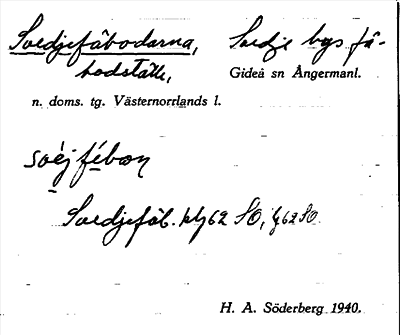 Soedjefäbodarna, Soedje bys fä-
bodställe, Gideå sn Ångermanl.
n. doms. tg. Västernorrlands l.
soéj fébon
Soedjefäb. blj 62 SO, fj 62 SO
H. A. Söderberg 1940.